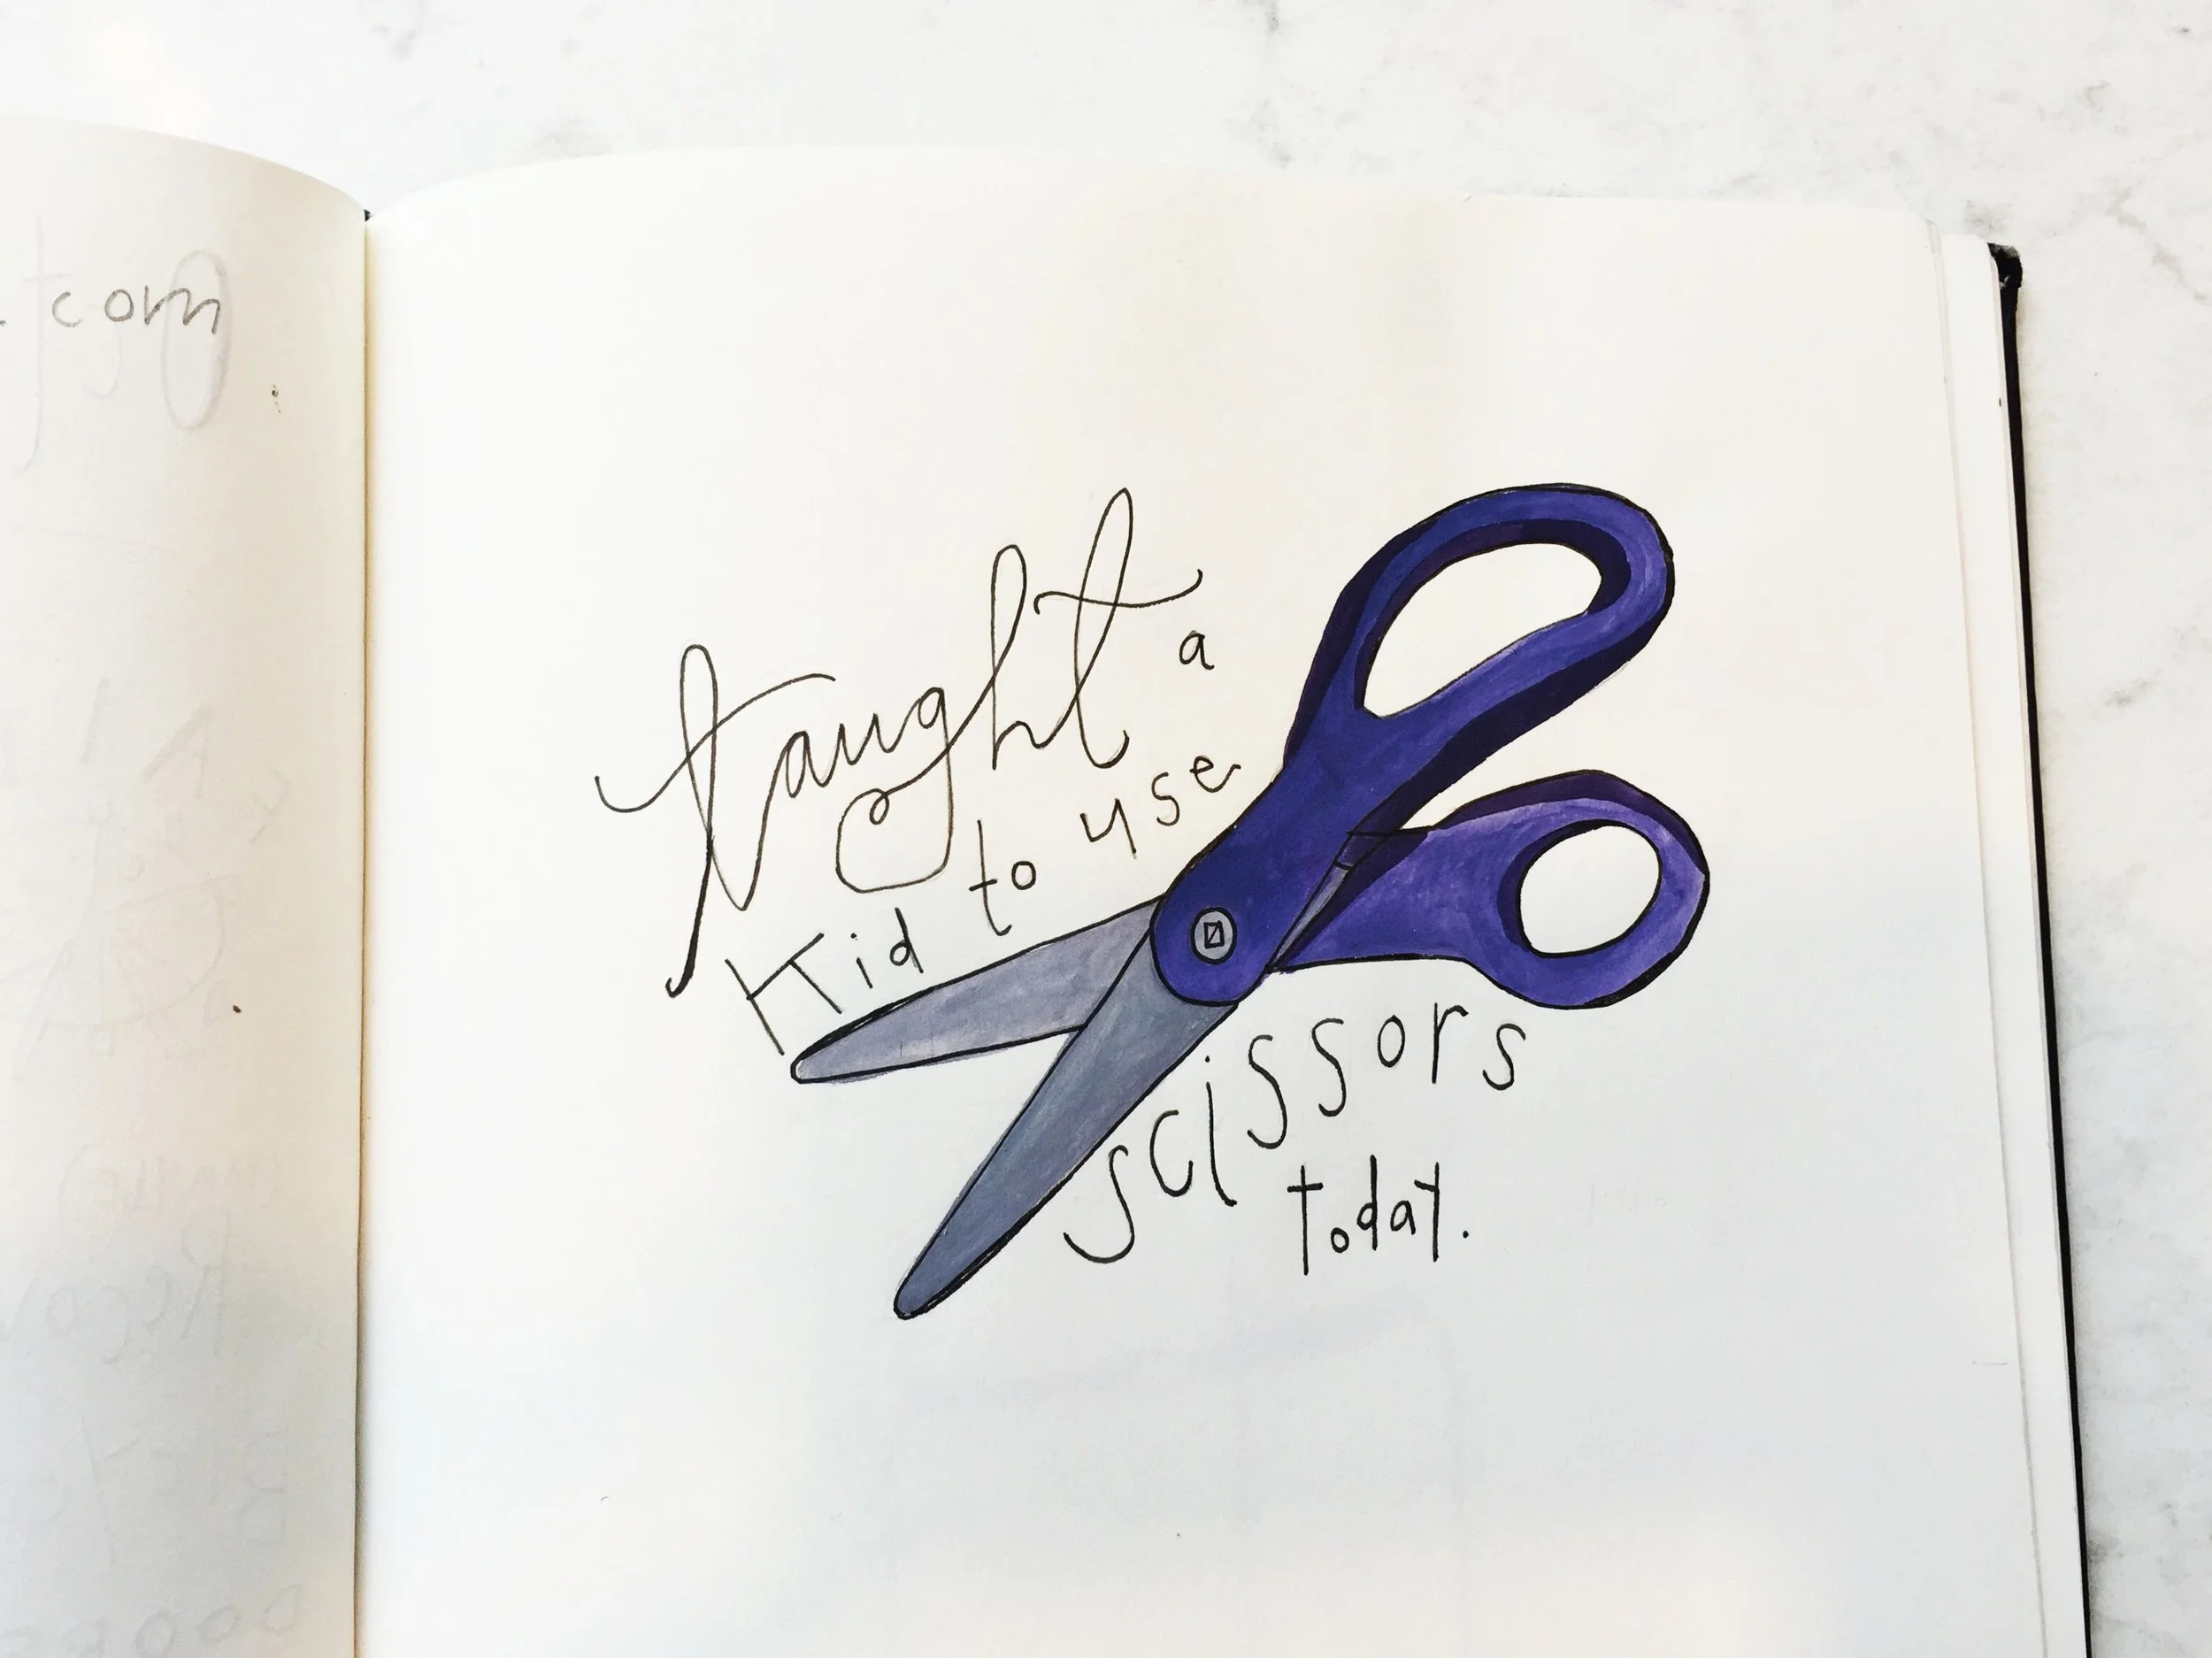 .com
taught a
Kid to use
scissors
today.